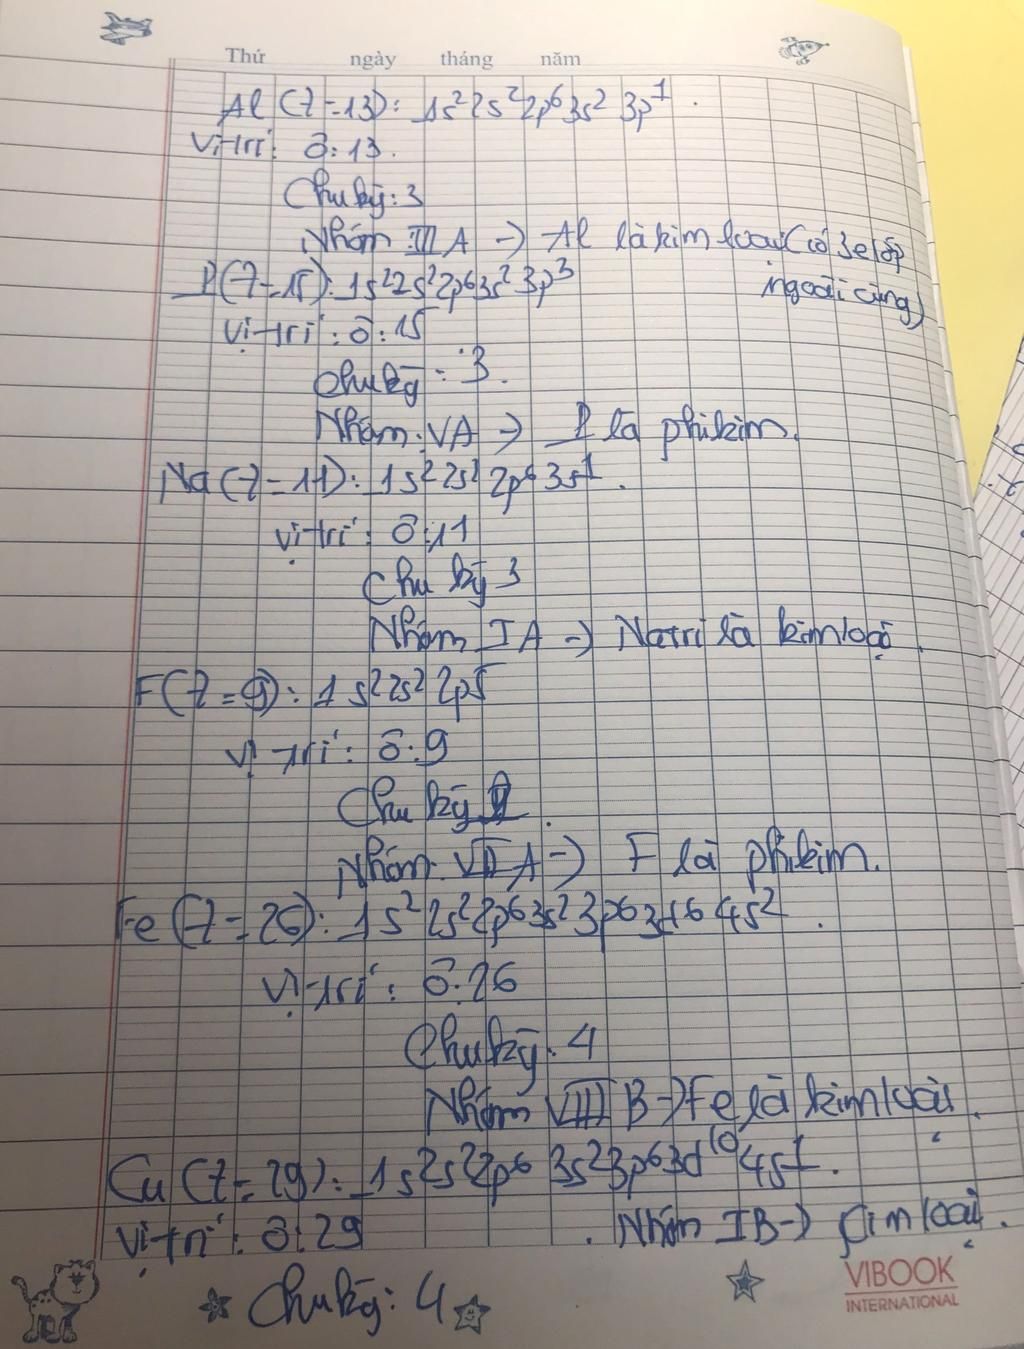 Thứ ngày tháng năm
Al (Z=13): 1s² 2s² 2p⁶ 3s² 3p¹.
Vị trí: ô: 13.
Chu kỳ: 3
Nhóm IIIA → Al là kim loại (có 3e lớp
ngoài cùng)
P (Z=15): 1s² 2s² 2p⁶ 3s² 3p³
Vị trí: ô: 15
Chu kỳ: 3.
Nhóm: VA → P là phi kim.
Na (Z=11): 1s² 2s² 2p⁶ 3s¹.
Vị trí: ô: 11
Chu kỳ 3
Nhóm IA → Natri là kim loại.
F (Z=9): 1s² 2s² 2p⁵
Vị trí: ô: 9
Chu kỳ 2.
Nhóm: VIIA → F là phi kim.
Fe (Z=26): 1s² 2s² 2p⁶ 3s² 3p⁶ 3d⁶ 4s².
Vị trí: ô: 26
Chu kỳ: 4
Nhóm VIIIB → Fe là kim loại.
Cu (Z=29): 1s² 2s² 2p⁶ 3s² 3p⁶ 3d¹⁰ 4s¹.
Vị trí: ô: 29 . Nhóm IB → kim loại.
Chu kỳ: 4
VIBOOK
INTERNATIONAL